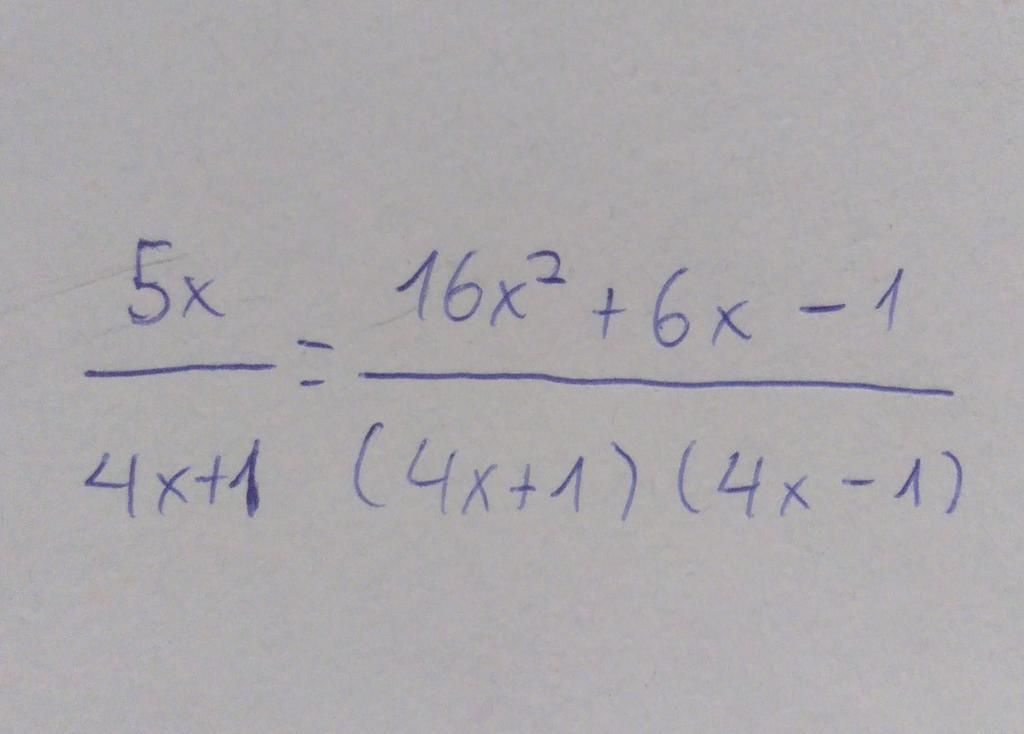 5x / 4x+1 = 16x² + 6x - 1 / (4x+1)(4x-1)